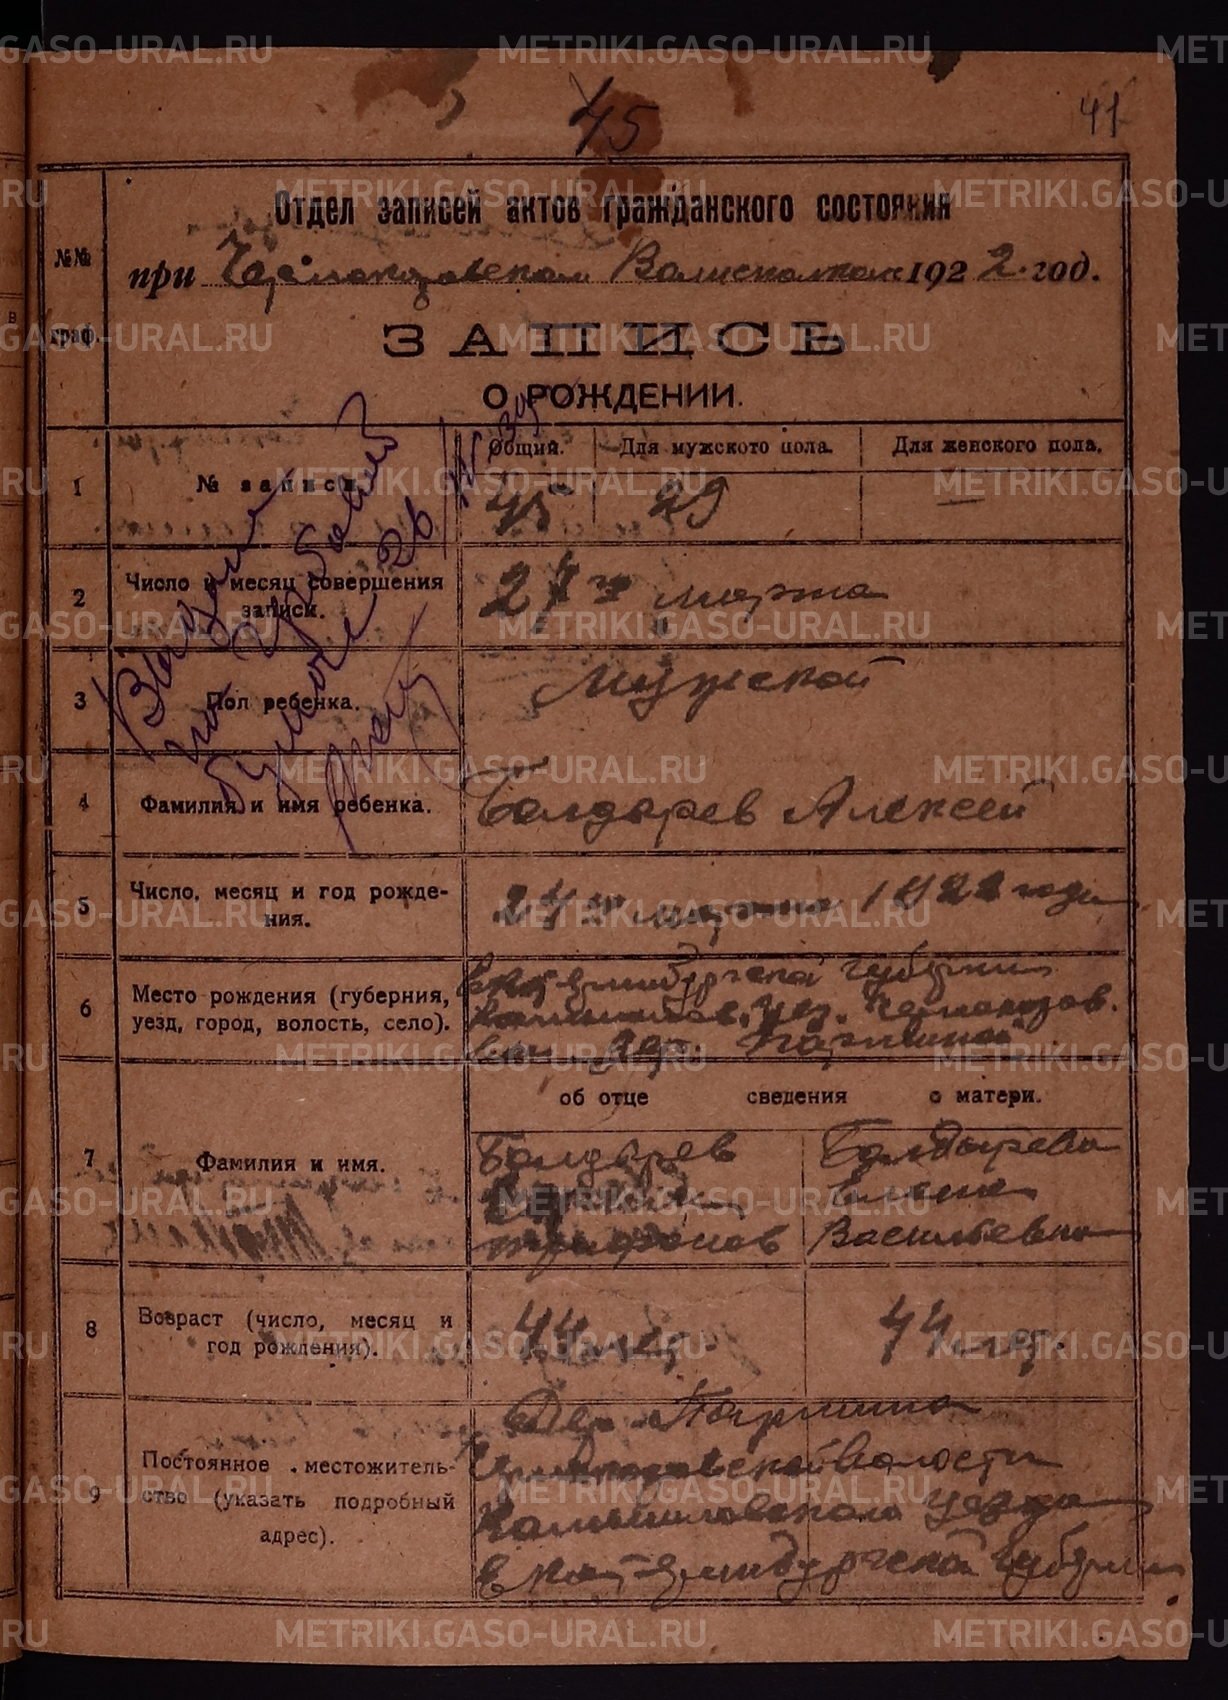 45
41
Отдел записей актов гражданского состояния
№№ граф.
при Волисполкоме 1922 год.
ЗАПИСЬ
О РОЖДЕНИИ.
Общий. Для мужского пола. Для женского пола.
1 № записи 45 29 —
2 Число и месяц совершения записи. 27го марта
3 Пол ребенка. Мужской
4 Фамилия и имя ребенка. Болдырев Алексей
5 Число, месяц и год рожде-
ния. марта 1922 года
6 Место рождения (губерния,
уезд, город, волость, село).
Екатеринбургской губернии
Камышлов. уез.
вол. дер.
об отце сведения о матери.
7 Фамилия и имя.
Болдырев Болдырева
Елена
Трифонов Васильевна
8 Возраст (число, месяц и
год рождения). 44 лет. 44 лет.
9 Постоянное местожитель-
ство (указать подробный
адрес).
Дер.
волости
Камышловского уезда
Екатеринбургской губернии
METRIKI.GASO-URAL.RU